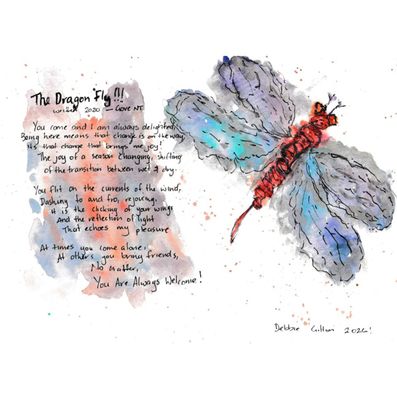 The Dragon Fly!!!
2020 - Gove NT
You come and I am always delighted,
Being here means that change is on the way,
It's that change that brings me joy!
The joy of a season changing, shifting
of the transition between wet & dry.
You flit on the currents of the wind,
Dashing to and fro, rejoicing,
It is the clicking of your wings
And the reflection of light
That echoes my pleasure
At times you come alone,
At others you bring friends,
No matter,
You Are Always Welcome!
Debbie 2024!